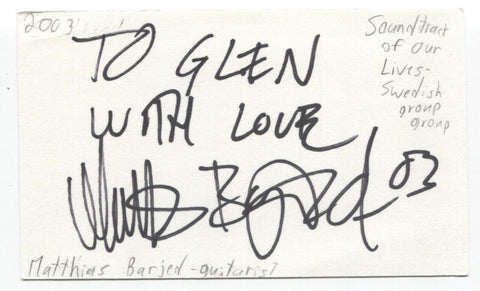 2003
Soundtract
of Our
Lives-
Swedish
group
group
TO GLEN
WITH LOVE
03
Matthias Barjed - guitarist